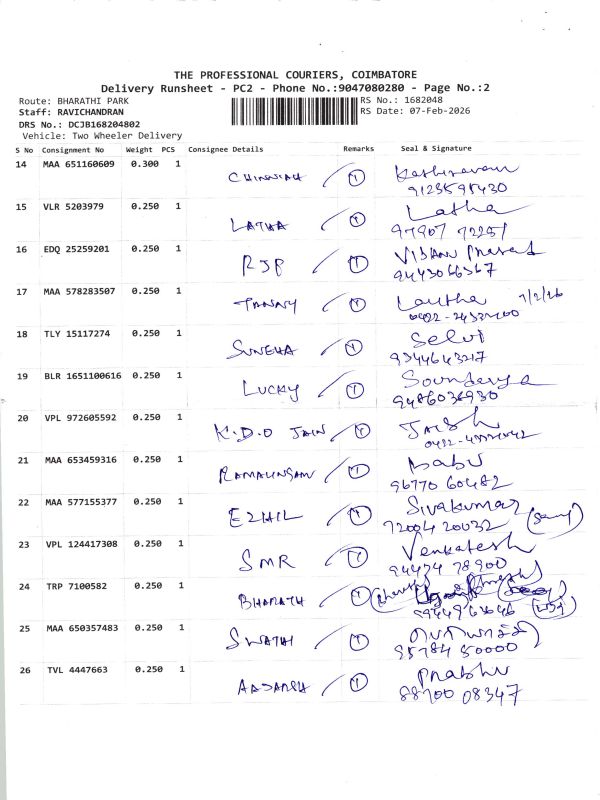 THE PROFESSIONAL COURIERS, COIMBATORE
Delivery Runsheet - PC2 - Phone No.:9047080280 - Page No.:2
Route: BHARATHI PARK
RS No.: 1682048
Staff: RAVICHANDRAN
RS Date: 07-Feb-2026
DRS No.: DCJB168204802
Vehicle: Two Wheeler Delivery
S No Consignment No Weight PCS Consignee Details Remarks Seal & Signature
14 MAA 651160609 0.300 1 CHINNIAH 1
15 VLR 5203979 0.250 1 LATHA 1 Latha
97907 72251
16 EDQ 25259201 0.250 1 RJP 1
9443066367
17 MAA 578283507 0.250 1 1 7/2/26
18 TLY 15117274 0.250 1 SUNEHA 1 Selvi
9344643217
19 BLR 1651100616 0.250 1 LUCKY 1 Soundarya
9486036930
20 VPL 972605592 0.250 1 K.D.O JAIN 1
21 MAA 653459316 0.250 1 RAMALINGAM 1 babu
96770 60482
22 MAA 577155377 0.250 1 EZHIL 1 Sivakumar
72004 20032
23 VPL 124417308 0.250 1 SMR 1 Venkatesh
94434 78900
24 TRP 7100582 0.250 1 BHARATH 1
25 MAA 650357483 0.250 1 SWATHI 1
95784 50000
26 TVL 4447663 0.250 1 AADARSH 1 Prabhu
88700 08347